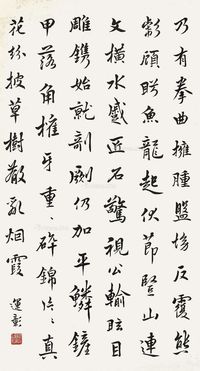 乃有拳曲擁腫盤坳反覆熊
彪顧盼魚龍起伏節豎山連
文橫水蹙匠石驚視公輸眩目
雕鐫始就剞劂仍加平鱗鏟
甲落角摧牙重重碎錦片片真
花紛披草樹散亂烟霞
運彰